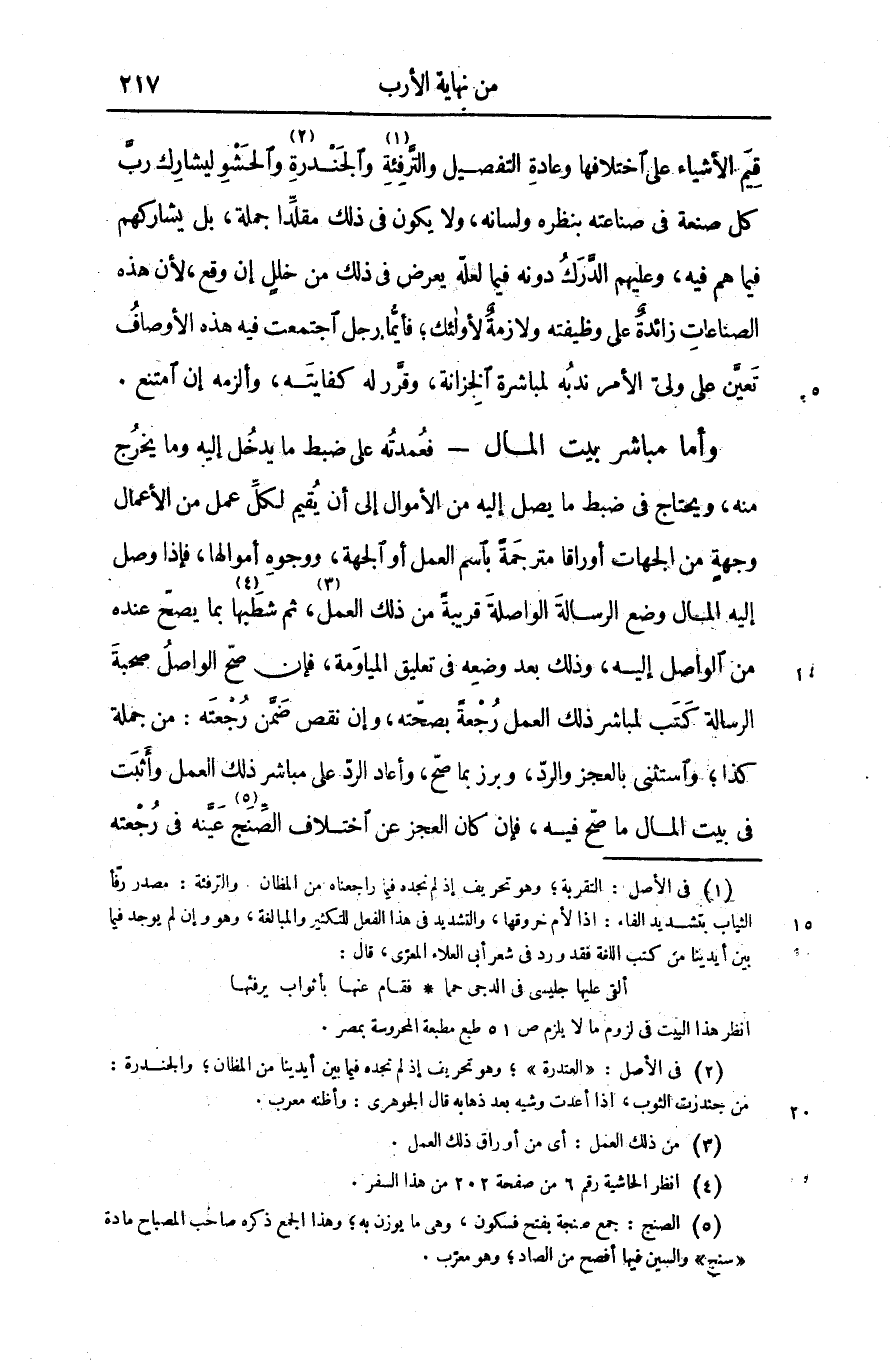 من نهاية الأرب ٢١٧
قِيَم الأشياء على ٱختلافها وعادةِ التفصيل والتَّرفِئةِ (١) وٱلجَنْدرةِ (٢) وٱلحَشْوِ ليشارك ربَّ
كل صنعة فى صناعته بنظره ولسانه، ولا يكون فى ذلك مقلِّدا جملة، بل يشاركهم
فيما هم فيه، وعليهم الدَّرَكُ دونه فيما لعلّه يعرض فى ذلك من خلل إن وقع، لأن هذه
الصناعاتِ زائدةٌ على وظيفته ولازمةٌ لأولئك؛ فأيُّما رجل ٱجتمعت فيه هذه الأوصافُ
تَعيَّن على ولىّ الأمر ندبُه لمباشرة ٱلخِزانة، وقرَّر له كفايتَه، وألزمه إن ٱمتنع . ٥
وأما مباشر بيت المال — فعُمدتُه على ضبط ما يدخُل إليه وما يخرُج
منه، ويحتاج فى ضبط ما يصل إليه من الأموال إلى أن يُقيم لكلِّ عمل من الأعمال
وجهةٍ من الجهات أوراقا مترجَمةً بٱسم العمل أو ٱلجهة، ووجوهِ أموالها، فإذا وصل
إليه المال وضع الرسالةَ الواصلةَ قريبةً من ذلك العمل (٣)، ثم شطَبها (٤) بما يصحّ عنده
من ٱلواصل إليه، وذلك بعد وضعِه فى تعليق المياوَمة، فإن صحّ الواصلُ صحبةَ ١٠
الرسالة كَتَب لمباشر ذلك العمل رُجْعةً بصحّته، وإن نقص ضَمَّن رُجْعتَه : من جملة
كذا؛ وٱستثنى بالعجز والردّ، وبرز بما صحّ، وأعاد الردّ على مباشر ذلك العمل وأَثبَت
فى بيت المال ما صحّ فيه، فإن كان العجز عن ٱختلاف الصِّنَج (٥) عَيَّنه فى رُجْعته
(١) فى الأصل : التقربة؛ وهو تحريف إذ لم نجده فيما راجعناه من المظان . والترفئة : مصدر رفّأ
الثياب بتشديد الفاء : اذا لأم خروقها، والتشديد فى هذا الفعل للتكثير والمبالغة، وهو وإن لم يوجد فيما ١٥
بين أيدينا من كتب اللغة فقد ورد فى شعر أبى العلاء المعرّى، قال :
ألقى عليها جليسى فى الدجى حما * فقام عنها بأثواب يرفئها
انظر هذا البيت فى لزوم ما لا يلزم ص ٥١ طبع مطبعة المحروسة بمصر .
(٢) فى الأصل : «العندرة» ؛ وهو تحريف إذ لم نجده فيما بين أيدينا من المظان؛ والجندرة :
من جندرت الثوب، اذا أعدت وشيه بعد ذهابه قال الجوهرى : وأظنه معرب . ٢٠
(٣) من ذلك العمل : أى من أوراق ذلك العمل .
(٤) انظر الحاشية رقم ٦ من صفحة ٢٠٢ من هذا السفر .
(٥) الصنج : جمع صنجة بفتح فسكون ، وهى ما يوزن به؛ وهذا الجمع ذكره صاحب المصباح مادة
«سنج» والسين فيها أفصح من الصاد؛ وهو معرّب .